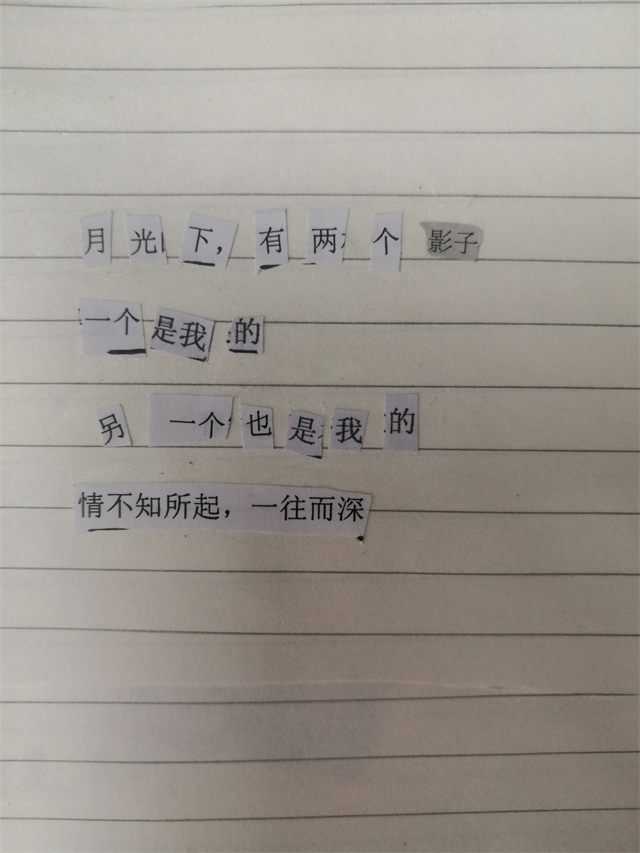 月光下，有两个影子
一个是我的
另一个也是我的
情不知所起，一往而深